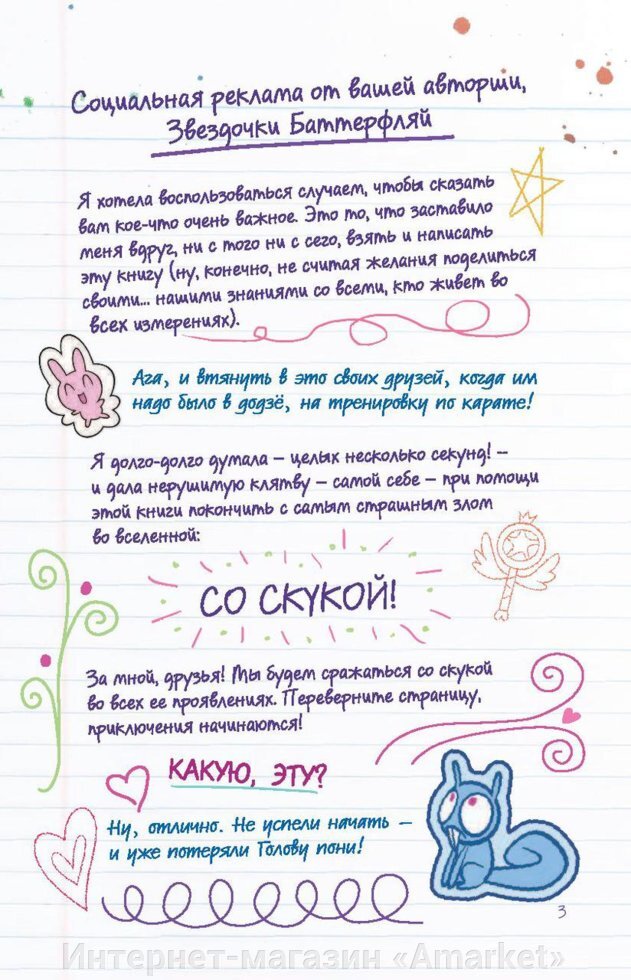 Социальная реклама от вашей авторши,
Звездочки Баттерфляй
Я хотела воспользоваться случаем, чтобы сказать
вам кое-что очень важное. Это то, что заставило
меня вдруг, ни с того ни с сего, взять и написать
эту книгу (ну, конечно, не считая желания поделиться
своими... нашими знаниями со всеми, кто живет во
всех измерениях).
Ага, и втянуть в это своих друзей, когда им
надо было в додзё, на тренировку по карате!
Я долго-долго думала – целых несколько секунд! –
и дала нерушимую клятву – самой себе – при помощи
этой книги покончить с самым страшным злом
во вселенной:
СО СКУКОЙ!
За мной, друзья! Мы будем сражаться со скукой
во всех ее проявлениях. Переверните страницу,
приключения начинаются!
КАКУЮ, ЭТУ?
Ну, отлично. Не успели начать –
и уже потеряли Голову пони!
3
Интернет-магазин «Amarket»